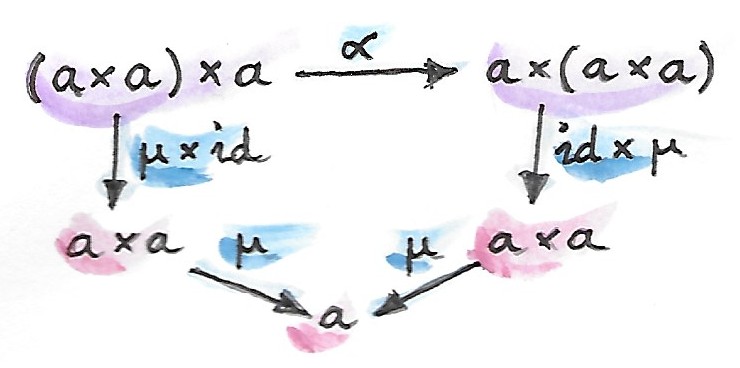 α
(a×a)×a a×(a×a)
μ×id id×μ
a×a μ μ a×a
a